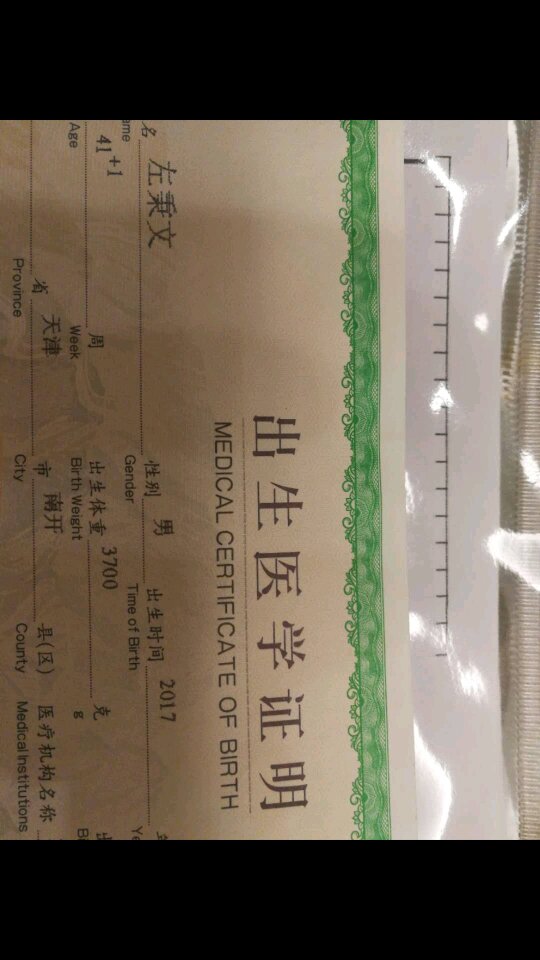 出生医学证明
MEDICAL CERTIFICATE OF BIRTH
名 左秉文 性别 男 出生时间 2017
ame Gender Time of Birth Ye
41+1 周 出生体重 3700 克
Age Week Birth Weight g
省 天津 市 南开 县(区) 医疗机构名称
Province City County Medical Institutions